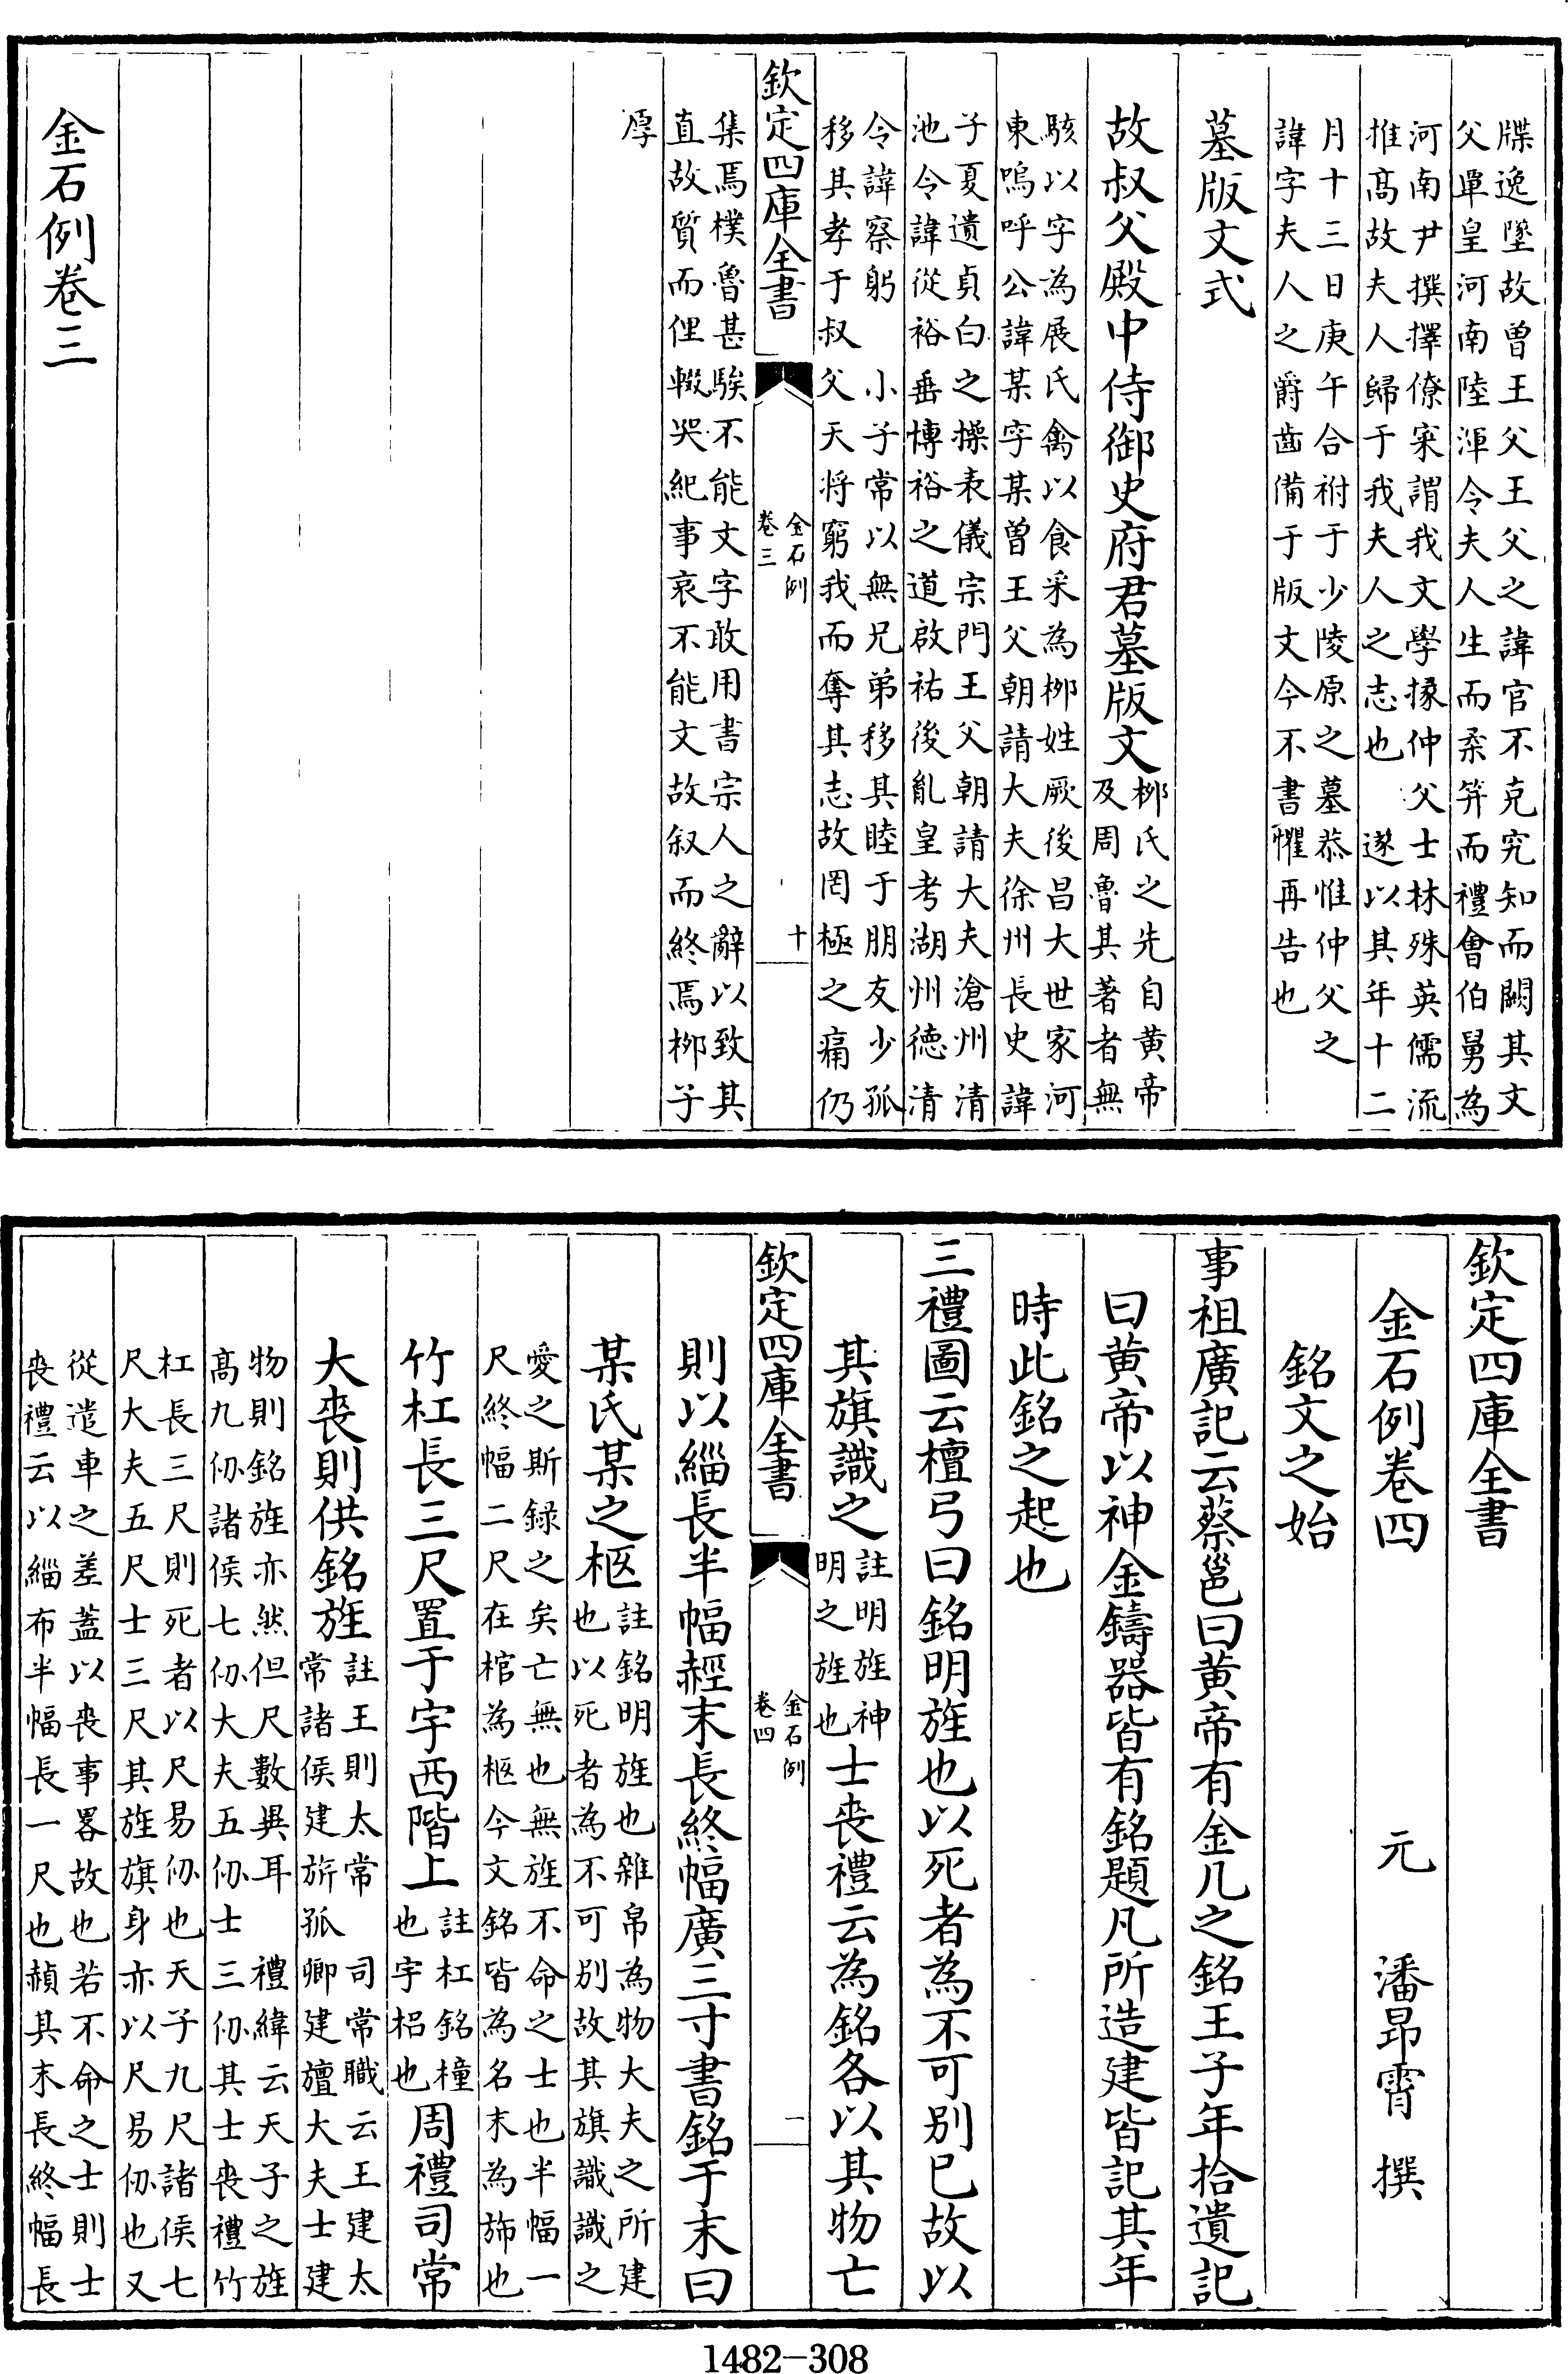 牒逸墜故曾王父王父之諱官不克究知而闕其文
父單皇河南陸渾令夫人生而柔笄而禮會伯舅為
河南尹撰擇僚寀謂我文學掾仲父士林殊英儒流
推髙故夫人歸于我夫人之志也　遂以其年十二
月十三日庚午合祔于少陵原之墓恭惟仲父之
諱字夫人之爵齒備于版文今不書懼再告也
墓版文式
故叔父殿中侍御史府君墓版文
栁氏之先自黄帝
及周魯其著者無
駭以字為展氏禽以食采為栁姓厥後昌大世家河
東嗚呼公諱某字某曾王父朝請大夫徐州長史諱
子夏遺貞白之操表儀宗門王父朝請大夫滄州清
池令諱從裕垂博裕之道啟祐後亂皇考湖州德清
令諱察躬　小子常以無兄弟移其睦于朋友少孤
移其孝于叔父天将窮我而奪其志故罔極之痛仍
欽定四庫全書
金石例
卷三
十
集焉樸魯甚騃不能文字敢用書宗人之辭以致其
直故質而俚輟哭紀事哀不能文故叙而終焉栁子
厚
金石例卷三
欽定四庫全書
金石例卷四
元　潘昂霄　撰
銘文之始
事祖廣記云蔡邕曰黄帝有金几之銘王子年拾遺記
曰黄帝以神金鑄器皆有銘題凡所造建皆記其年
時此銘之起也
三禮圖云檀弓曰銘明旌也以死者為不可别已故以
其旗識之
註明旌神
明之旌也
士喪禮云為銘各以其物亡
欽定四庫全書
金石例
卷四
一
則以緇長半幅經末長終幅廣三寸書銘于末曰
某氏某之柩
註銘明旌也雜帛為物大夫之所建
也以死者為不可别故其旗識識之
愛之斯録之矣亡無也無旌不命之士也半幅一
尺終幅二尺在棺為柩今文銘皆為名末為斾也
竹杠長三尺置于宇西階上
註杠銘橦
也宇梠也
周禮司常
大喪則供銘旌
註王則太常　司常職云王建太
常諸侯建旂孤卿建旜大夫士建
物則銘旌亦然但尺數異耳　禮緯云天子之旌
髙九仞諸侯七仞大夫五仞士三仞其士喪禮竹
杠長三尺則死者以尺易仞也天子九尺諸侯七
尺大夫五尺士三尺其旌旗身亦以尺易仞也又
從遣車之差蓋以喪事畧故也若不命之士則士
喪禮云以緇布半幅長一尺也赬其末長終幅長
1482-308